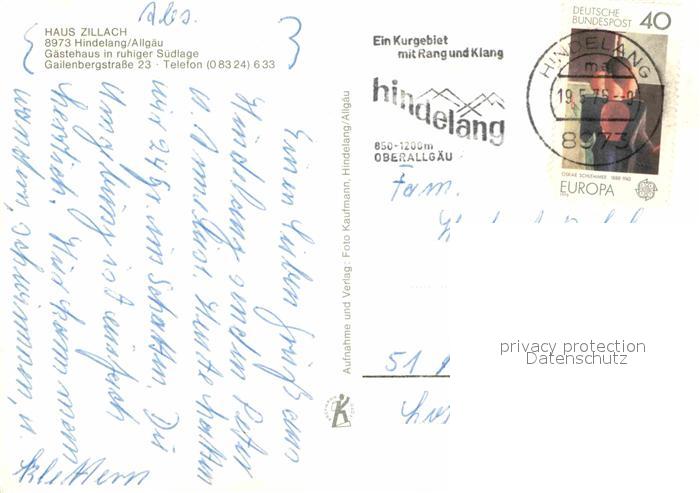 Abs.
HAUS ZILLACH
8973 Hindelang/Allgäu
Gästehaus in ruhiger Südlage
Gailenbergstraße 23 · Telefon (0 83 24) 6 33
Einen lieben Gruß aus
Hindelang senden Peter
u. Heute hatten
wir 24 gr. im Schatten. Die
Umgebung ist einfach
herrlich. Hier kann man
wandern, schwimmen, u.
klettern
Aufnahme und Verlag: Foto Kaufmann, Hindelang/Allgäu
Ein Kurgebiet
mit Rang und Klang
hindelang
850-1200m
OBERALLGÄU
HINDELANG
ma
19.5.75
8973
DEUTSCHE
BUNDESPOST 40
OSKAR SCHLEMMER 1888-1943
EUROPA
Fam.
51
privacy protection
Datenschutz